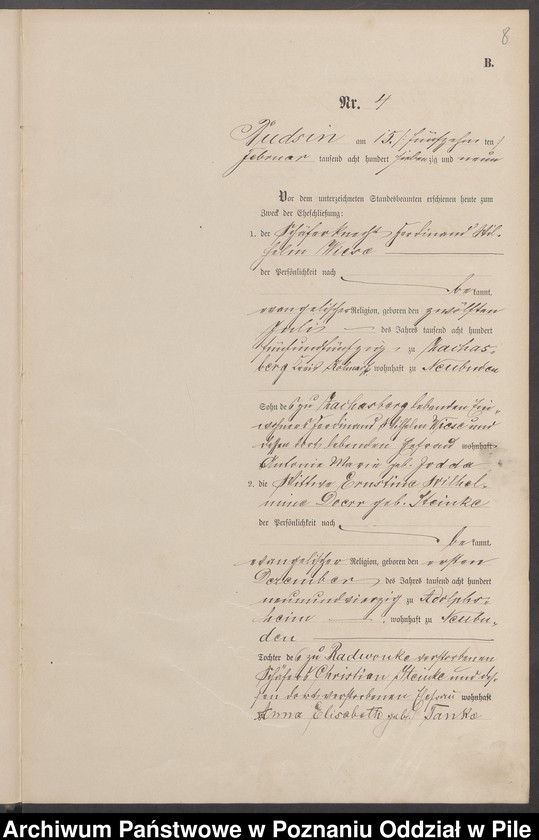 8
B.
Nr. 4
Rudsin am 15. /: fünfzehn ten :/
Februar tausend acht hundert siebenzig und neun
Vor dem unterzeichneten Standesbeamten erschienen heute zum
Zweck der Eheschließung:
1. der Schäferknecht Ferdinand Wil-
helm Wiese
der Persönlichkeit nach
bekannt,
evangelischer Religion, geboren den zwölften
Juli des Jahres tausend acht hundert
fünfundfünfzig zu Zachas-
berg Kreis Kolmar, wohnhaft zu Neubuden
Sohn des zu Zachasberg lebenden Ein-
wohners Ferdinand Wilhelm Wiese und
dessen dort lebenden Ehefrau wohnhaft
Antonie Marie geb. Jodda
2. die Wittwe Ernstine Wilhel-
mine Doerr geb. Steinke
der Persönlichkeit nach
bekannt,
evangelischer Religion, geboren den ersten
Dezember des Jahres tausend acht hundert
neunundvierzig zu Adolphs-
heim, wohnhaft zu Neubu-
den
Tochter des zu Radwonke verstorbenen
Schäfers Christian Steinke und des-
sen dort verstorbenen Ehefrau wohnhaft
Anna Elisabeth geb. Tanke
Archiwum Państwowe w Poznaniu Oddział w Pile